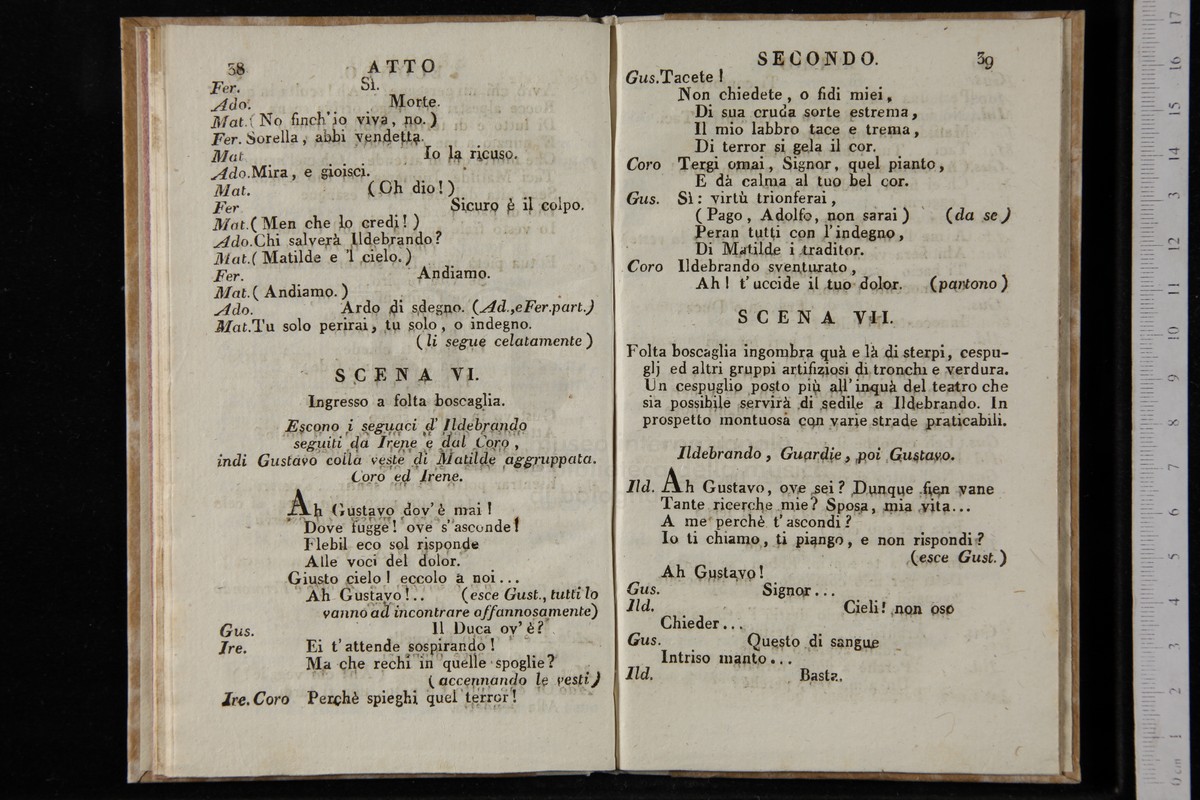 38 ATTO
Fer. Sì.
Ado. Morte.
Mat. ( No finch' io viva, no. )
Fer. Sorella, abbi vendetta.
Mat. Io la ricuso.
Ado. Mira, e gioisci.
Mat. ( Oh dio! )
Fer. Sicuro è il colpo.
Mat. ( Men che lo credi! )
Ado. Chi salverà Ildebrando?
Mat. ( Matilde e 'l cielo. )
Fer. Andiamo.
Mat. ( Andiamo. )
Ado. Ardo di sdegno. (Ad., e Fer. part.)
Mat. Tu solo perirai, tu solo, o indegno.
( li segue celatamente )
SCENA VI.
Ingresso a folta boscaglia.
Escono i seguaci d' Ildebrando
seguiti da Irene e dal Coro,
indi Gustavo colla veste di Matilde aggruppata.
Coro ed Irene.
Ah Gustavo dov' è mai!
Dove fugge! ove s'asconde!
Flebil eco sol risponde
Alle voci del dolor.
Giusto cielo! eccolo a noi...
Ah Gustavo!.. (esce Gust., tutti lo
vanno ad incontrare affannosamente)
Gus. Il Duca ov' è?
Ire. Ei t' attende sospirando!
Ma che rechi in quelle spoglie?
( accennando le vesti )
Ire. Coro Perchè spieghi quel terror!
SECONDO. 39
Gus. Tacete!
Non chiedete, o fidi miei,
Di sua cruda sorte estrema,
Il mio labbro tace e trema,
Di terror si gela il cor.
Coro Tergi omai, Signor, quel pianto,
E dà calma al tuo bel cor.
Gus. Sì: virtù trionferai,
( Pago, Adolfo, non sarai ) (da se)
Peran tutti con l' indegno,
Di Matilde i traditor.
Coro Ildebrando sventurato,
Ah! t' uccide il tuo dolor. (partono)
SCENA VII.
Folta boscaglia ingombra quà e là di sterpi, cespu-
glj ed altri gruppi artifiziosi di tronchi e verdura.
Un cespuglio posto più all' inquà del teatro che
sia possibile servirà di sedile a Ildebrando. In
prospetto montuosa con varie strade praticabili.
Ildebrando, Guardie, poi Gustavo.
Ild. Ah Gustavo, ove sei? Dunque fien vane
Tante ricerche mie? Sposa, mia vita...
A me perchè t' ascondi?
Io ti chiamo, ti piango, e non rispondi?
(esce Gust.)
Ah Gustavo!
Gus. Signor...
Ild. Cieli! non oso
Chieder...
Gus. Questo di sangue
Intriso manto...
Ild. Basta.
0 cm 1 2 3 4 5 6 7 8 9 10 11 12 13 14 15 16 17